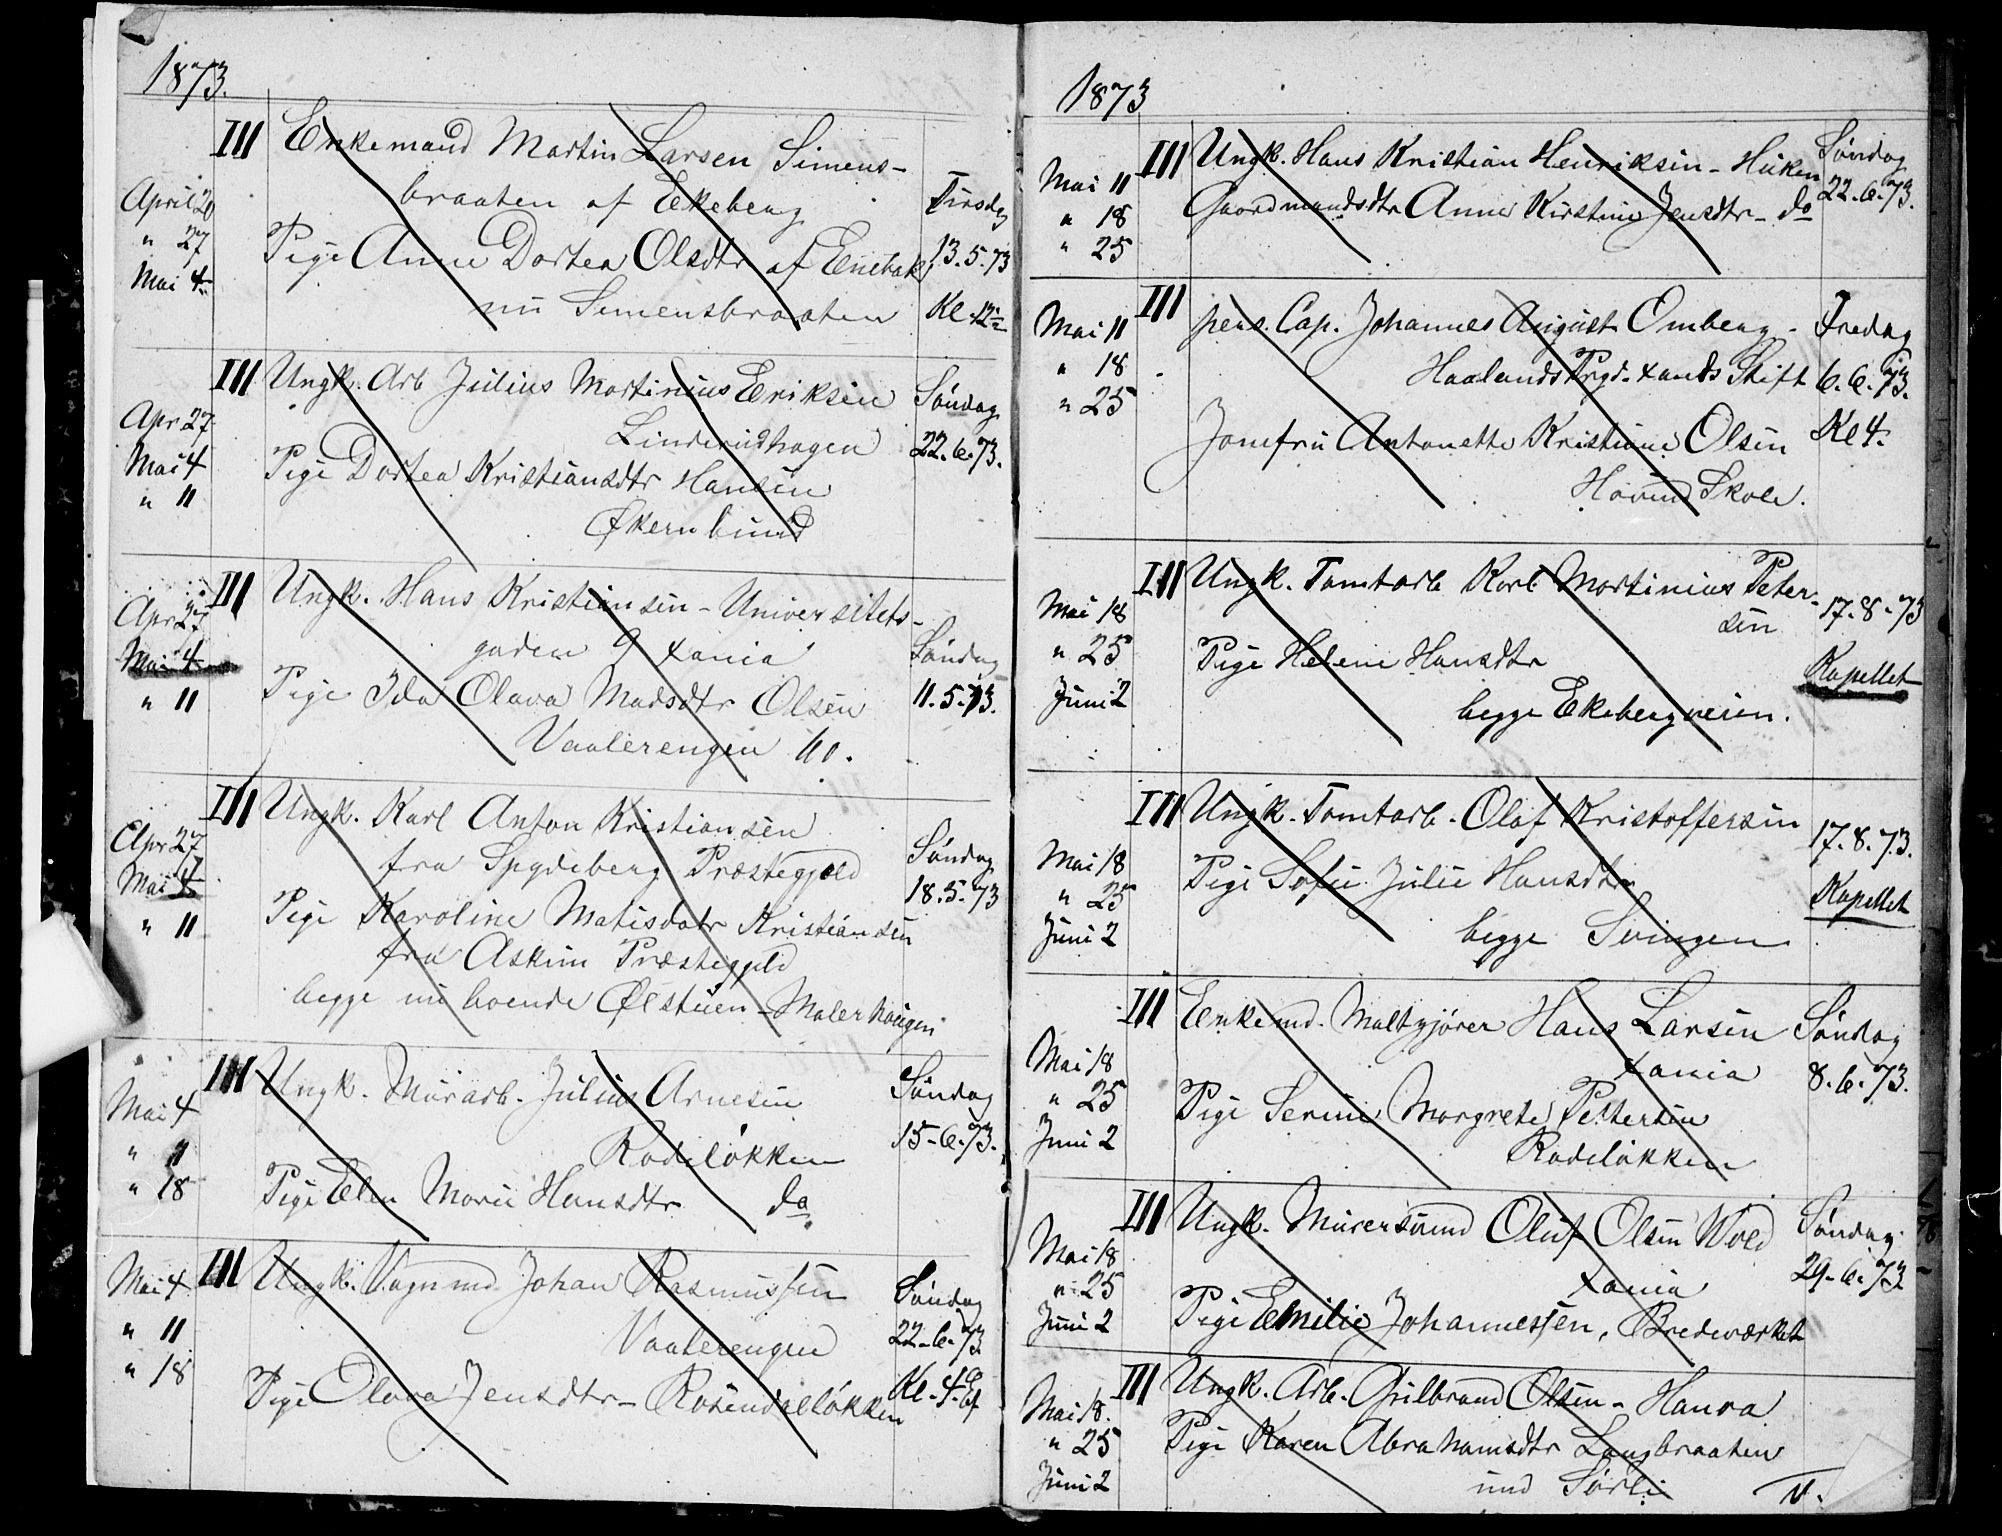 1873.
III Enkemand Martin Larsen Simens-
braaten af Ekeberg
Tirsdag
April 20
" 27
Mai 4
Pige Anne Dortea Olsdtr af Enebak
13.5.73
nu Simensbraaten
Kl. 12½
III Ungk. Arb Julius Martinius Eriksen
Søndag
Apr 27
Linderudhagen
22.6.73.
Mai 4
Pige Dortea Kristiansdtr Hansen
" 11
Økernbund
III Ungk. Hans Kristiansen - Universitets-
Apr 27
gaden 9 Xania
Søndag
Mai 4
Pige Ida Olava Madsdtr Olsen
11.5.73.
" 11
Vaalerengen 60.
III Ungk. Karl Anton Kristiansen
Apr 27
fra Spydeberg Præstegjeld
Søndag
Mai 4
18.5.73
Pige Karoline Matisdatr Kristiansen
" 11
fra Askim Præstegjeld
begge nu boende Ølstuen - Malerhaugen
III Ungk. Murarb. Julius Arnesen
Søndag
Mai 4
Rodeløkken
15-6.73.
" 11
" 18
Pige Elen Marie Hansdtr do
III Ungk. Vognmd Johan Rasmussen
Søndag
Mai 4
Vaalerengen
22-6-73
" 11
" 18
Pige Olava Jensdtr - Rosendalløkken
Kl. 4
1873
III Ungk. Hans Kristian Henriksen - Huken
Søndag
Mai 11
22-6.73.
" 18
Gaardmandsdtr Anne Kirstine Jensdtr - do
" 25
III pens. Cap. Johannes August Omberg -
Fredag
Mai 11
" 18
Haalands Prgd. Xands Stift
6.6.73.
" 25
Jomfru Antonette Kristiane Olsen
Kl 4.
Høvind Skole.
III Ungk. Tomtarb Karl Martinius Peter-
sen
17.8-73
Mai 18
" 25
Pige Helene Hansdtr
Kapellet
Juni 2
begge Ekebergveien.
III Ungk. Tomtarb. Olaf Kristoffersen
17.8.73.
Mai 18
Pige Sofie Julie Hansdtr
" 25
Kapellet
Juni 2
begge Svingen
III Enkemd. Maltgjører Hans Larsen
Søndag
Mai 18
Xania
8.6.73.
" 25
Pige Serine Margrete Pettersen
Juni 2
Rodeløkken
III Ungk. Murersvend Oluf Olsen Wold
Søndag
Mai 18
Xania
29-6.73
" 25
Juni 2
Pige Emilie Johannessen, Bredeværket
III Ungk. Arb. Gulbrand Olsen - Haura
Mai 18.
" 25
Pige Karen Abrahamsdtr Langbraaten
Juni 2
und Sørli